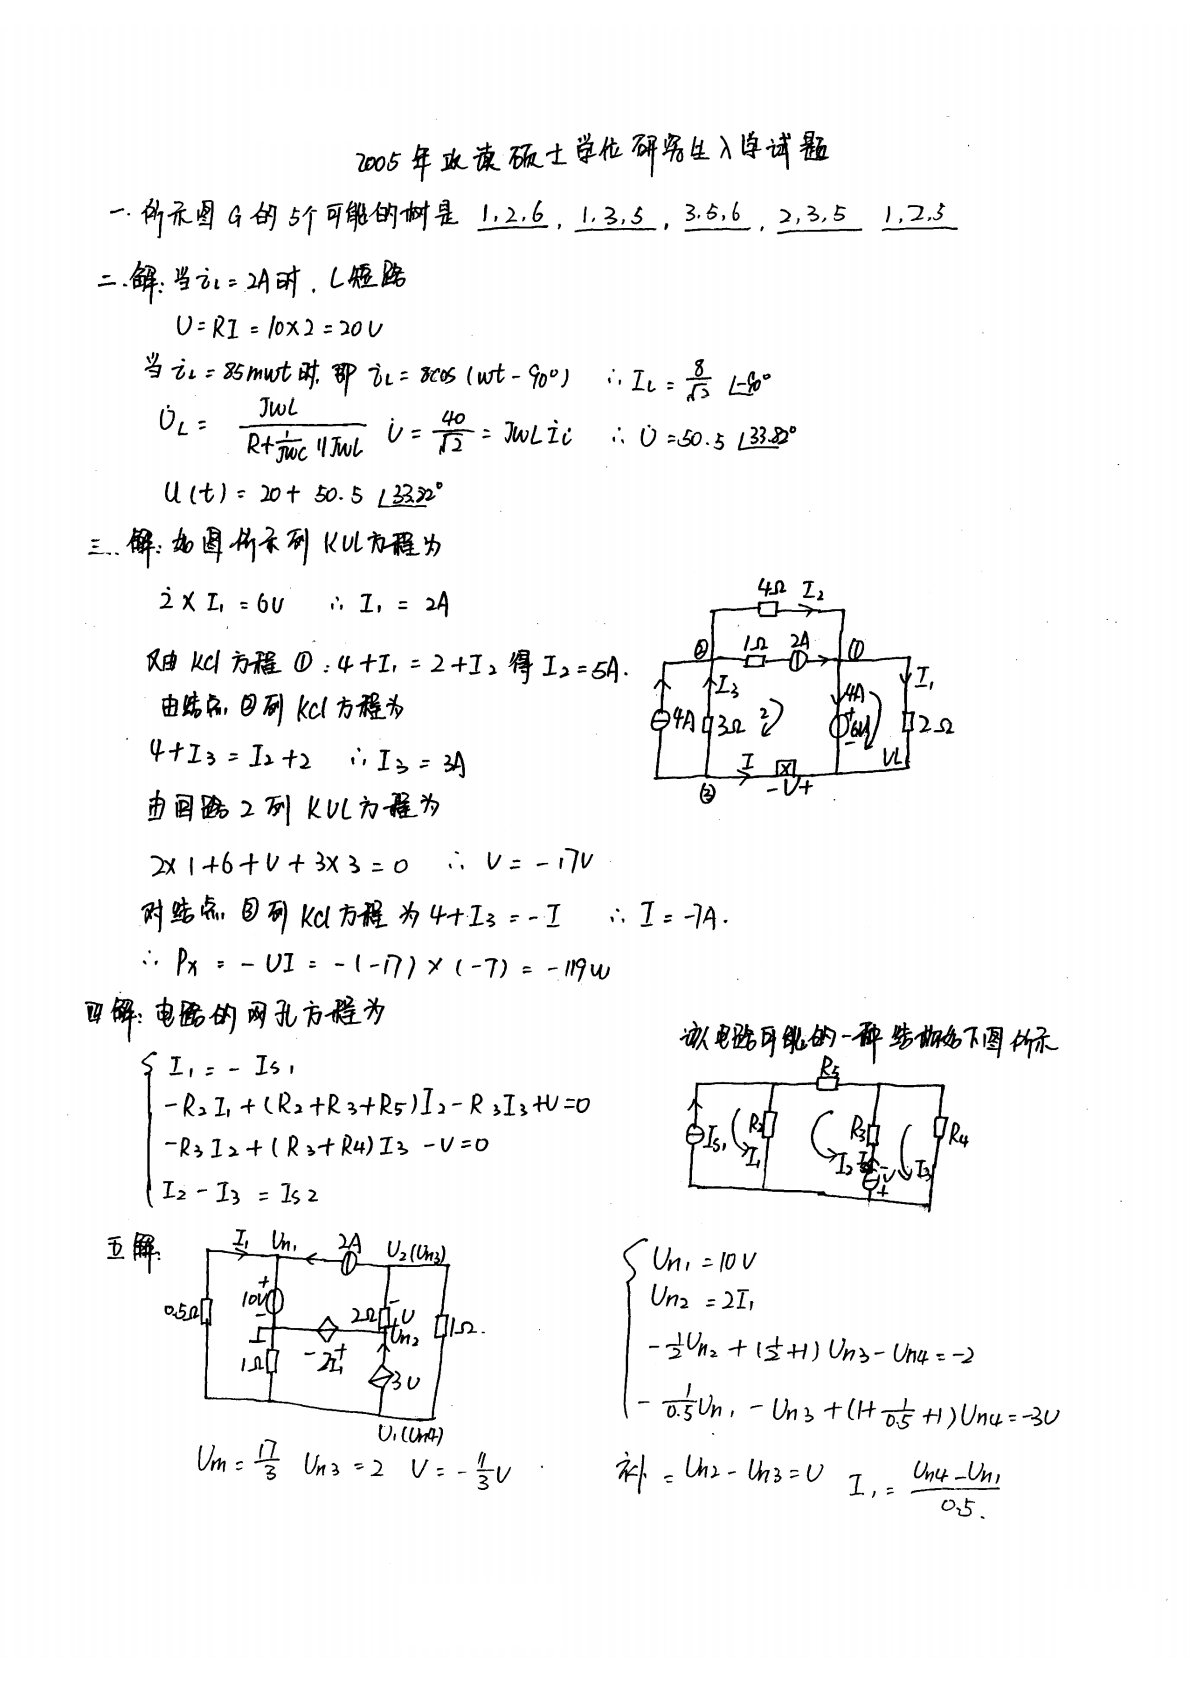 2005年攻读硕士学位研究生入学试题
一.所示图G的5个可能的树是 1,2,6, 1.3,5, 3.5,6, 2,3,5 1,2,5
二.解:当iL=2A时,L短路
U=RI=10×2=20U
当iL=85mwt时,即iL=8cos(wt-90°) ∴IL=8/√2∠-90°
U̇L= JwL/(R+1/Jwc∥JwL) U̇=40/√2=JwLİi ∴U̇=50.5∠33.82°
U(t)=20+50.5∠33.82°
三.解:如图所示列KUL方程为
2×I1=6U ∴I1=2A
又由KCl方程①:4+I1=2+I2得I2=5A.
由结点②列KCl方程为
4+I3=I2+2 ∴I3=3A
由回路2列KUL方程为
2×1+6+U+3×3=0 ∴U=-17U
对结点③列KCl方程为4+I3=-I ∴I=-7A.
∴Px=-UI=-(-17)×(-7)=-119w
4Ω I2
② 1Ω 2A ①
I3 4A I1
4A 3Ω 2 + 6U - 2Ω
I UL
③ x -U+
四解:电路的网孔方程为
I1=-Is1
-R2I1+(R2+R3+R5)I2-R3I3+U=0
-R3I2+(R3+R4)I3-U=0
I2-I3=Is2
该电路可能的一种结构如下图所示
R5
Is1 R2 R3 R4
I1 I2 - U I3
+
五解:
I1 Un1 2A U2(Un3)
0.5Ω 10U + - 2Ω - U + Un2 1Ω.
1Ω - 2I1 + 3U
U1(Un4)
Un1=17/3 Un3=2 U=-11/3U
Un1=10U
Un2=2I1
-1/2Un2+(1/2+1)Un3-Un4=-2
-1/0.5Un1-Un3+(1+1/0.5+1)Un4=-3U
补=Un2-Un3=U I1=(Un4-Un1)/0.5.